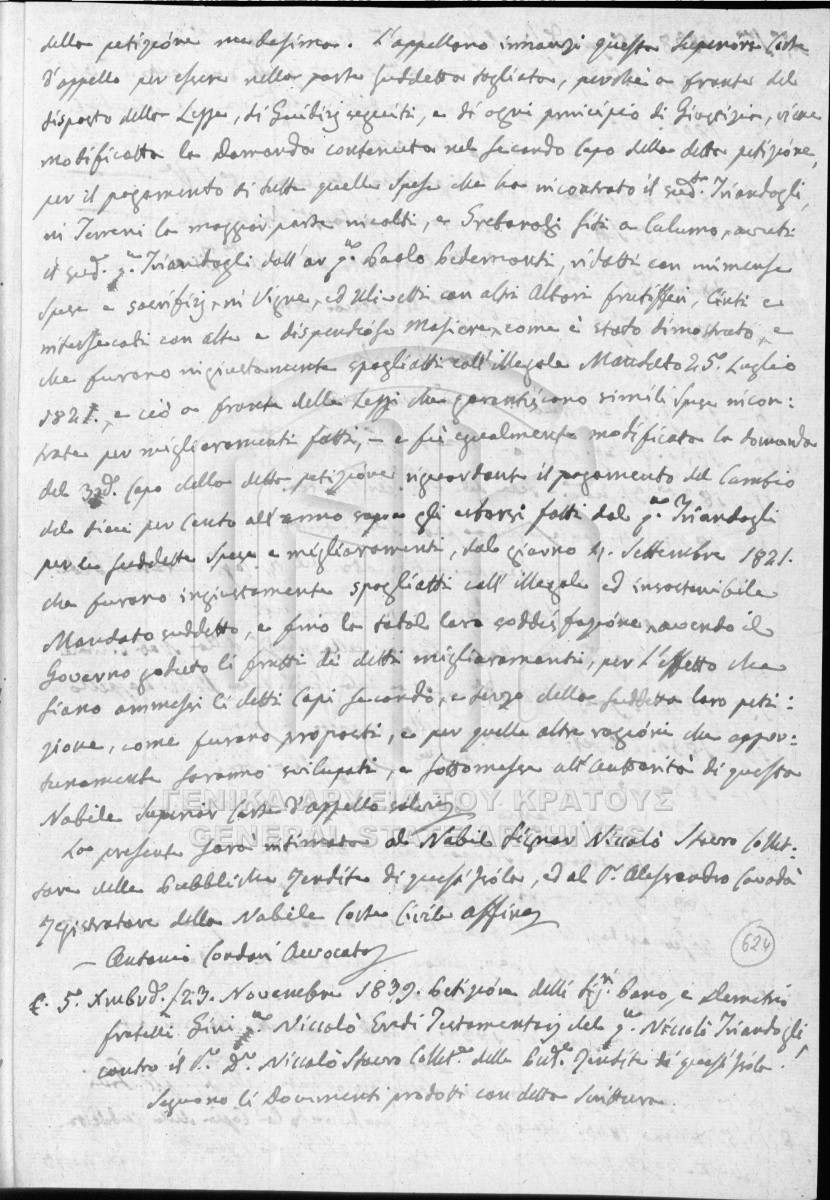 della petizione medesima. L'appellano innanzi questa Superiore Corte
d'appello per essere nella parte suddetta tagliata, perchè a fronte del
disposto della Legge, di Giudizj seguiti, e di ogni principio di Giustizia, viene
modificatta la Domanda contenuta nel secondo Capo della detta petizione,
per il pagamento di tutte quelle spese che ha incontrato il sud.to Triandogli,
ni Terreni la maggior parte incolti, e siti a Calumo,
il sud.o q.m Triandogli dall'av q.m Paolo Pedemonti, ridotti con immense
Spese e sacrifizj in Vigne, ed Uliveti con altri Alberi fruttifferi, Cinti e
intersecati con alte e dispendiose Masiere, come è stato dimostrato, e
che furono ingiustamente spogliatti coll'illegale Mandato 25. Luglio
1821. e ciò a fronte delle Leggi che garantiscono simili spese incon:
trate per miglioramenti fatti, – e fù egualmente modificata la domanda
del 3zo. Capo della detta petizione riguardante il pagamento del Cambio
del dieci per Cento all'anno sopra gli esborsi fatti dal q.m Triandogli
per le suddette Spese e miglioramenti, dal giorno 4. Settembre 1821.
che furono ingiustamente spogliatti coll'illegale ed insostenibile
Mandato suddetto, e fino la total loro soddisfazione, avendo il
Governo goduto li frutti di detti miglioramenti, per l'effetto che
siano ammessi li detti Capi secondo, e terzo della suddetta loro peti:
zione, come furono proposti, e per quelle altre raggioni che appor:
tunamente saranno svilupati, e sottomesse all'Authorità di questa
Nobile Superior Corte d'appello
ΓΕΝΙΚΑ ΑΡΧΕΙΑ ΤΟΥ ΚΡΑΤΟΥΣ
GENERAL STATE ARCHIVES
La presente sarà intimata al Nobil Signor Niccolò Stavro Collet:
tore delle Pubbliche Rendite di quest'Isola, ed al S.r Alessandro Cavadà
Registratore della Nobile Corte Civile affine
– Antonio Condari Avvocato
624
5. 23. Novembre 1839. Petizione delli Sig.ri Pano, e Demetrio
fratelli Gini q.m Niccolò Eredi Testamentarj del q.m Niccolò Triandogli,
contro il S.r D.r Niccolò Stavro Collet.e delle Pub.e Rendite di quest'Isola.
Seguono li Documenti prodotti con detta Scrittura.